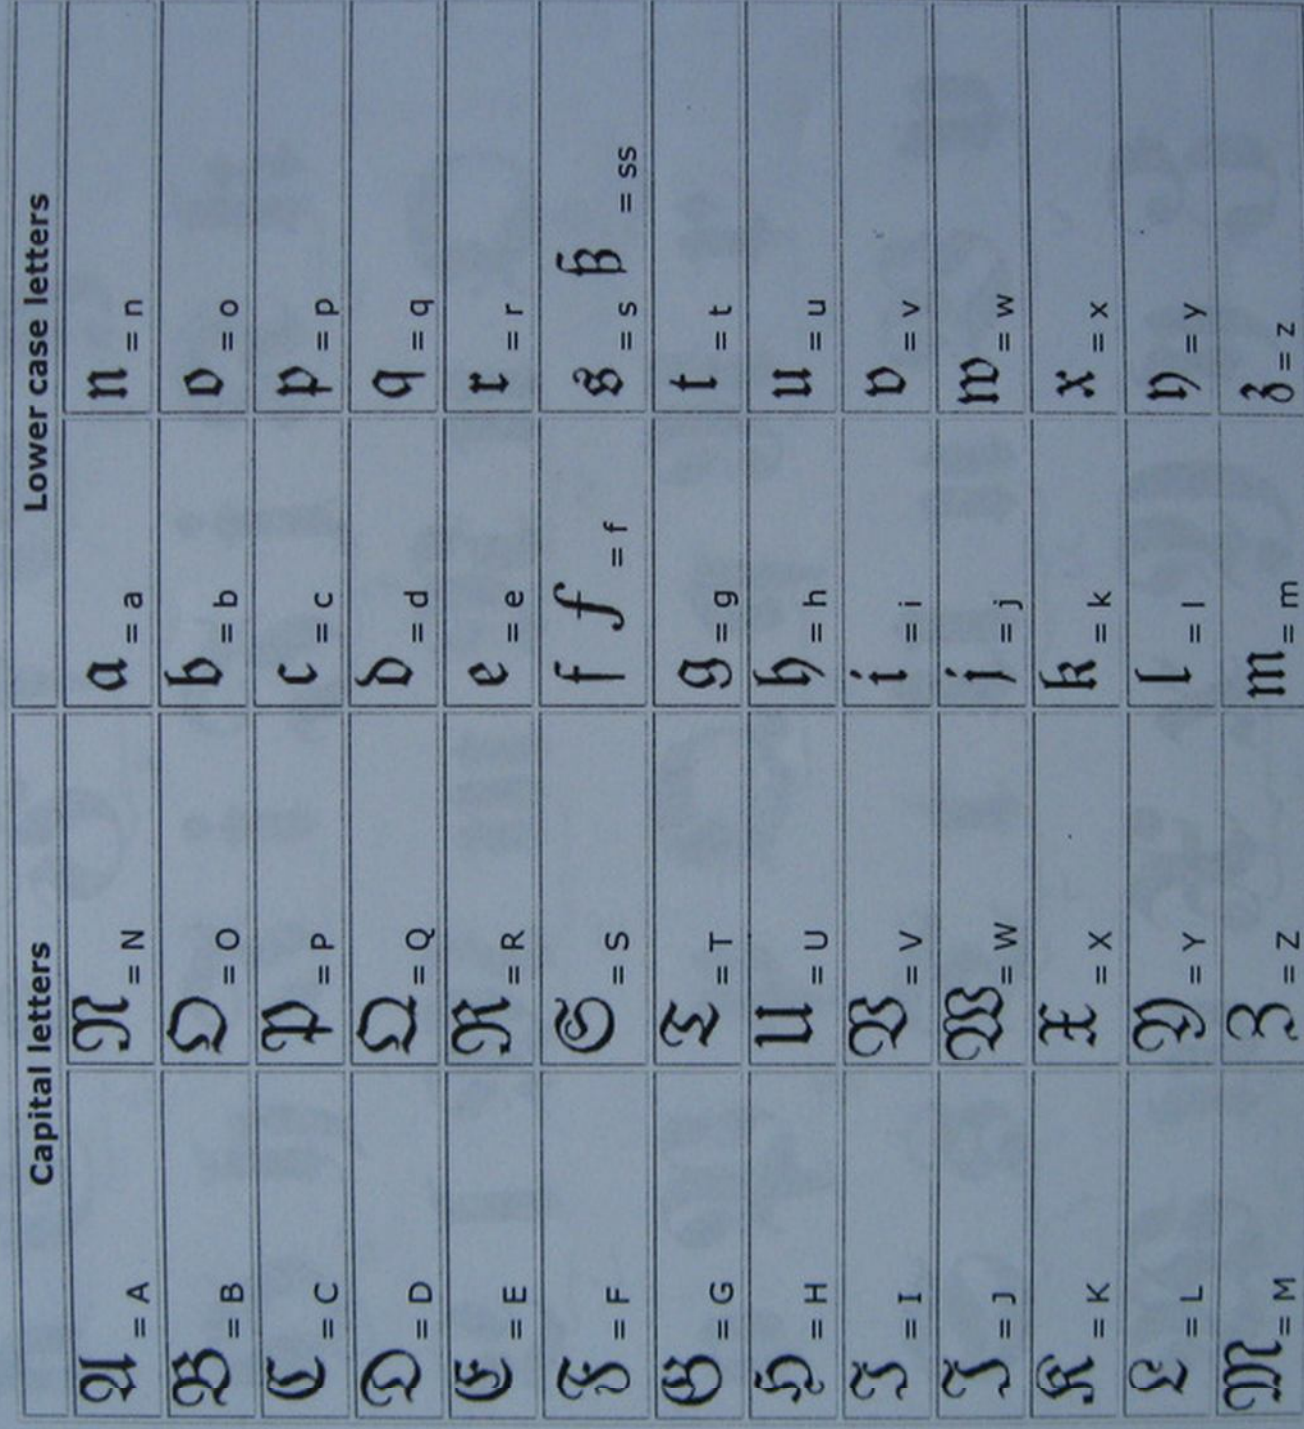 Capital letters Lower case letters
𝔄 = A 𝔑 = N 𝔞 = a 𝔫 = n
𝔅 = B 𝔒 = O 𝔟 = b 𝔬 = o
ℭ = C 𝔓 = P 𝔠 = c 𝔭 = p
𝔇 = D 𝔔 = Q 𝔡 = d 𝔮 = q
𝔈 = E ℜ = R 𝔢 = e 𝔯 = r
𝔉 = F 𝔖 = S 𝔣 f = f 𝔰 = s ß = ss
𝔊 = G 𝔗 = T 𝔤 = g 𝔱 = t
ℌ = H 𝔘 = U 𝔥 = h 𝔲 = u
ℑ = I 𝔙 = V 𝔦 = i 𝔳 = v
𝔍 = J 𝔚 = W 𝔧 = j 𝔴 = w
𝔎 = K 𝔛 = X 𝔨 = k 𝔵 = x
𝔏 = L 𝔜 = Y 𝔩 = l 𝔶 = y
𝔐 = M ℨ = Z 𝔪 = m 𝔷 = z